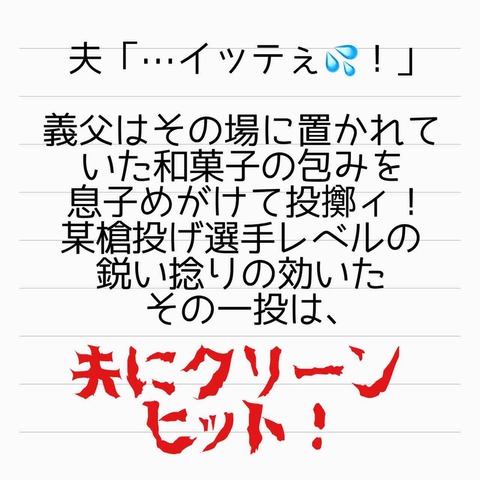 夫「…イッテぇ💦！」
義父はその場に置かれて
いた和菓子の包みを
息子めがけて投擲ィ！
某槍投げ選手レベルの
鋭い捻りの効いた
その一投は、
夫にクリーン
ヒット！